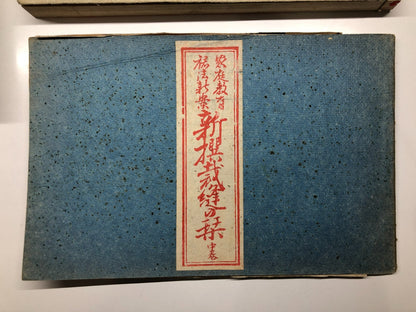 家庭教育
法新案
新撰裁縫の栞 中巻